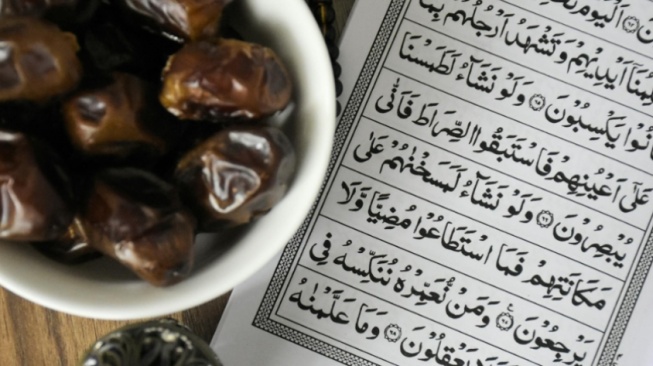 اَلْيَوْمَ
اَيْدِيْهِمْ وَتَشْهَدُ اَرْجُلُهُمْ بِمَا
انُوْا يَكْسِبُوْنَ ۝ وَلَوْ نَشَآءُ لَطَمَسْنَا
عَلٰٓى اَعْيُنِهِمْ فَاسْتَبَقُوا الصِّرَاطَ فَاَنّٰى
يُبْصِرُوْنَ ۝ وَلَوْ نَشَآءُ لَمَسَخْنٰهُمْ عَلٰى
مَكَانَتِهِمْ فَمَا اسْتَطَاعُوْا مُضِيًّا وَّلَا
يَرْجِعُوْنَ ۝ وَمَنْ نُّعَمِّرْهُ نُنَكِّسْهُ فِى
يَعْقِلُوْنَ ۝ وَمَا عَلَّمْنٰهُ